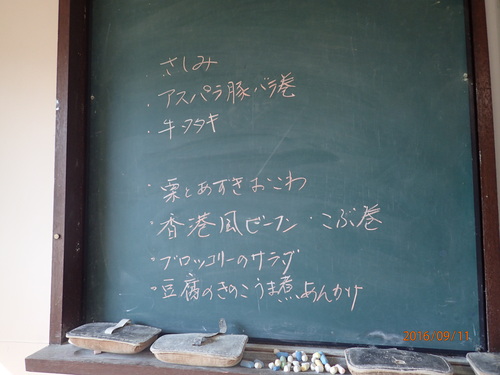 ・さしみ
・アスパラ豚バラ巻
・牛タタキ
・栗とあずきおこわ
・香港風ビーフン・こぶ巻
・ブロッコリーのサラダ
・豆腐のきのこうま煮あんかけ
2016/09/11